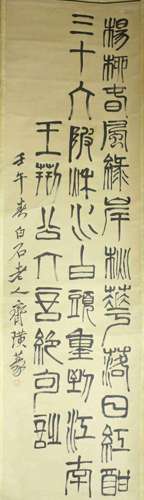 楊柳春風綠岸華落日紅酣
三十六陂水白頭重到江南
王荊公六言絕句詩
壬午春白石老人齊璜篆